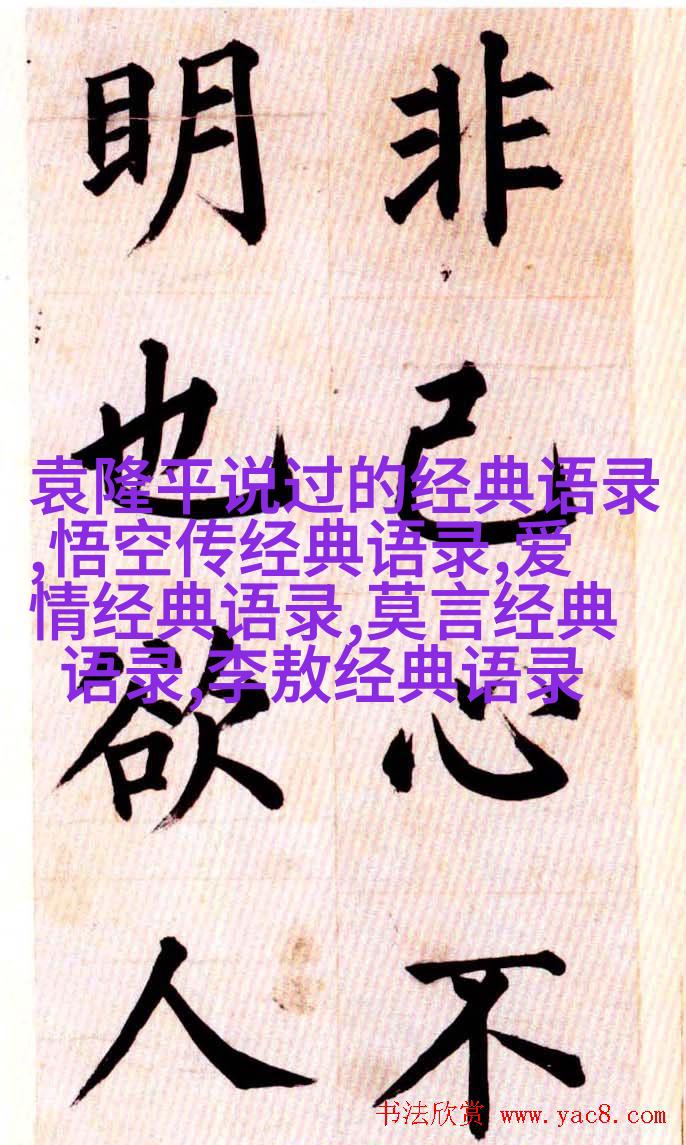 非己心不
明也欲人
袁隆平说过的经典语录
,悟空传经典语录,爱
情经典语录,莫言经典
语录,李敖经典语录
书法欣赏 www.yac8.com